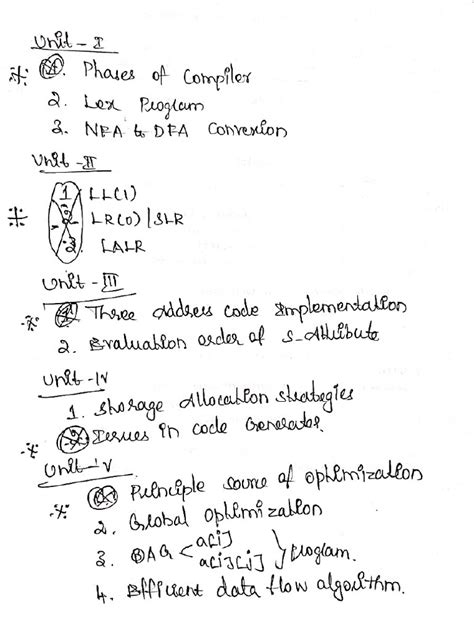 Unit - I
1. Phases of Compiler
2. Lex Program
3. NFA to DFA Conversion
Unit - II
1 LL(1)
2 LR(0) | SLR
3. LALR
Unit - III
1 Three Address code Implementation
2. Evaluation order of S-Attribute
Unit - IV
1. Storage Allocation Strategies
2 Issues in code Generator.
Unit - V
1 Principle source of optimization
2. Global optimization
3. DAG < a[i] a[i][j] } program.
4. Efficient data flow algorithm.